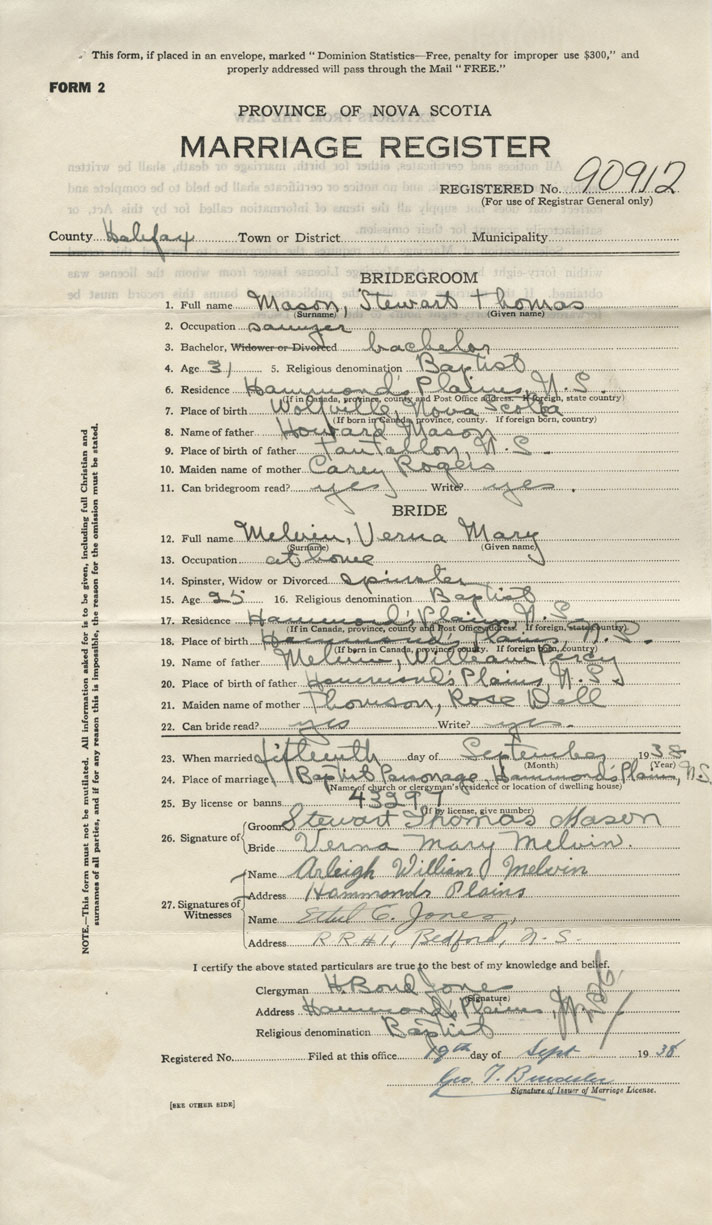 This form, if placed in an envelope, marked "Dominion Statistics—Free, penalty for improper use $300," and
properly addressed will pass through the Mail "FREE."
FORM 2
PROVINCE OF NOVA SCOTIA
MARRIAGE REGISTER
REGISTERED No. 90912
(For use of Registrar General only)
County Halifax Town or District Municipality
BRIDEGROOM
1. Full name Mason, Stewart Thomas
(Surname) (Given name)
2. Occupation sawyer
3. Bachelor, Widower or Divorced bachelor
4. Age 31 5. Religious denomination Baptist
6. Residence Hammond's Plains, N.S.
(If in Canada, province, county and Post Office address. If foreign, state country)
7. Place of birth Wolfville, Nova Scotia
(If born in Canada, province, county. If foreign born, country)
8. Name of father Howard Mason
9. Place of birth of father Tantallon, N.S.
10. Maiden name of mother Carey Rogers
11. Can bridegroom read? yes Write? yes.
BRIDE
12. Full name Melvin, Verna Mary
(Surname) (Given name)
13. Occupation at home
14. Spinster, Widow or Divorced spinster
15. Age 25 16. Religious denomination Baptist
17. Residence Hammond's Plains, N.S.
(If in Canada, province, county and Post Office address. If foreign, state country)
18. Place of birth Hammond's Plains, N.S.
(If born in Canada, province, county. If foreign born, country)
19. Name of father Melvin, William Percy
20. Place of birth of father Hammond's Plains, N.S.
21. Maiden name of mother Thomson, Rose Dell
22. Can bride read? yes Write? yes.
23. When married fifteenth day of September 1938
(Month) (Year)
24. Place of marriage Baptist Parsonage, Hammond's Plains, N.S.
(Name of church or clergyman's residence or location of dwelling house)
25. By license or banns 43297
(If by license, give number)
26. Signature of
Groom Stewart Thomas Mason
Bride Verna Mary Melvin.
27. Signatures of Witnesses
Name Arleigh William Melvin
Address Hammonds Plains
Name Ethel C. Jones,
Address R R #1, Bedford, N.S.
I certify the above stated particulars are true to the best of my knowledge and belief.
Clergyman H. Bond Jones
(Signature)
Address Hammond's Plains, N.S.
Religious denomination Baptist
Registered No. Filed at this office 19th day of Sept 1938
Geo. T.
Signature of Issuer of Marriage License.
[SEE OTHER SIDE]
NOTE.—This form must not be mutilated. All information asked for is to be given, including full Christian and
surnames of all parties, and if for any reason this is impossible, the reason for the omission must be stated.